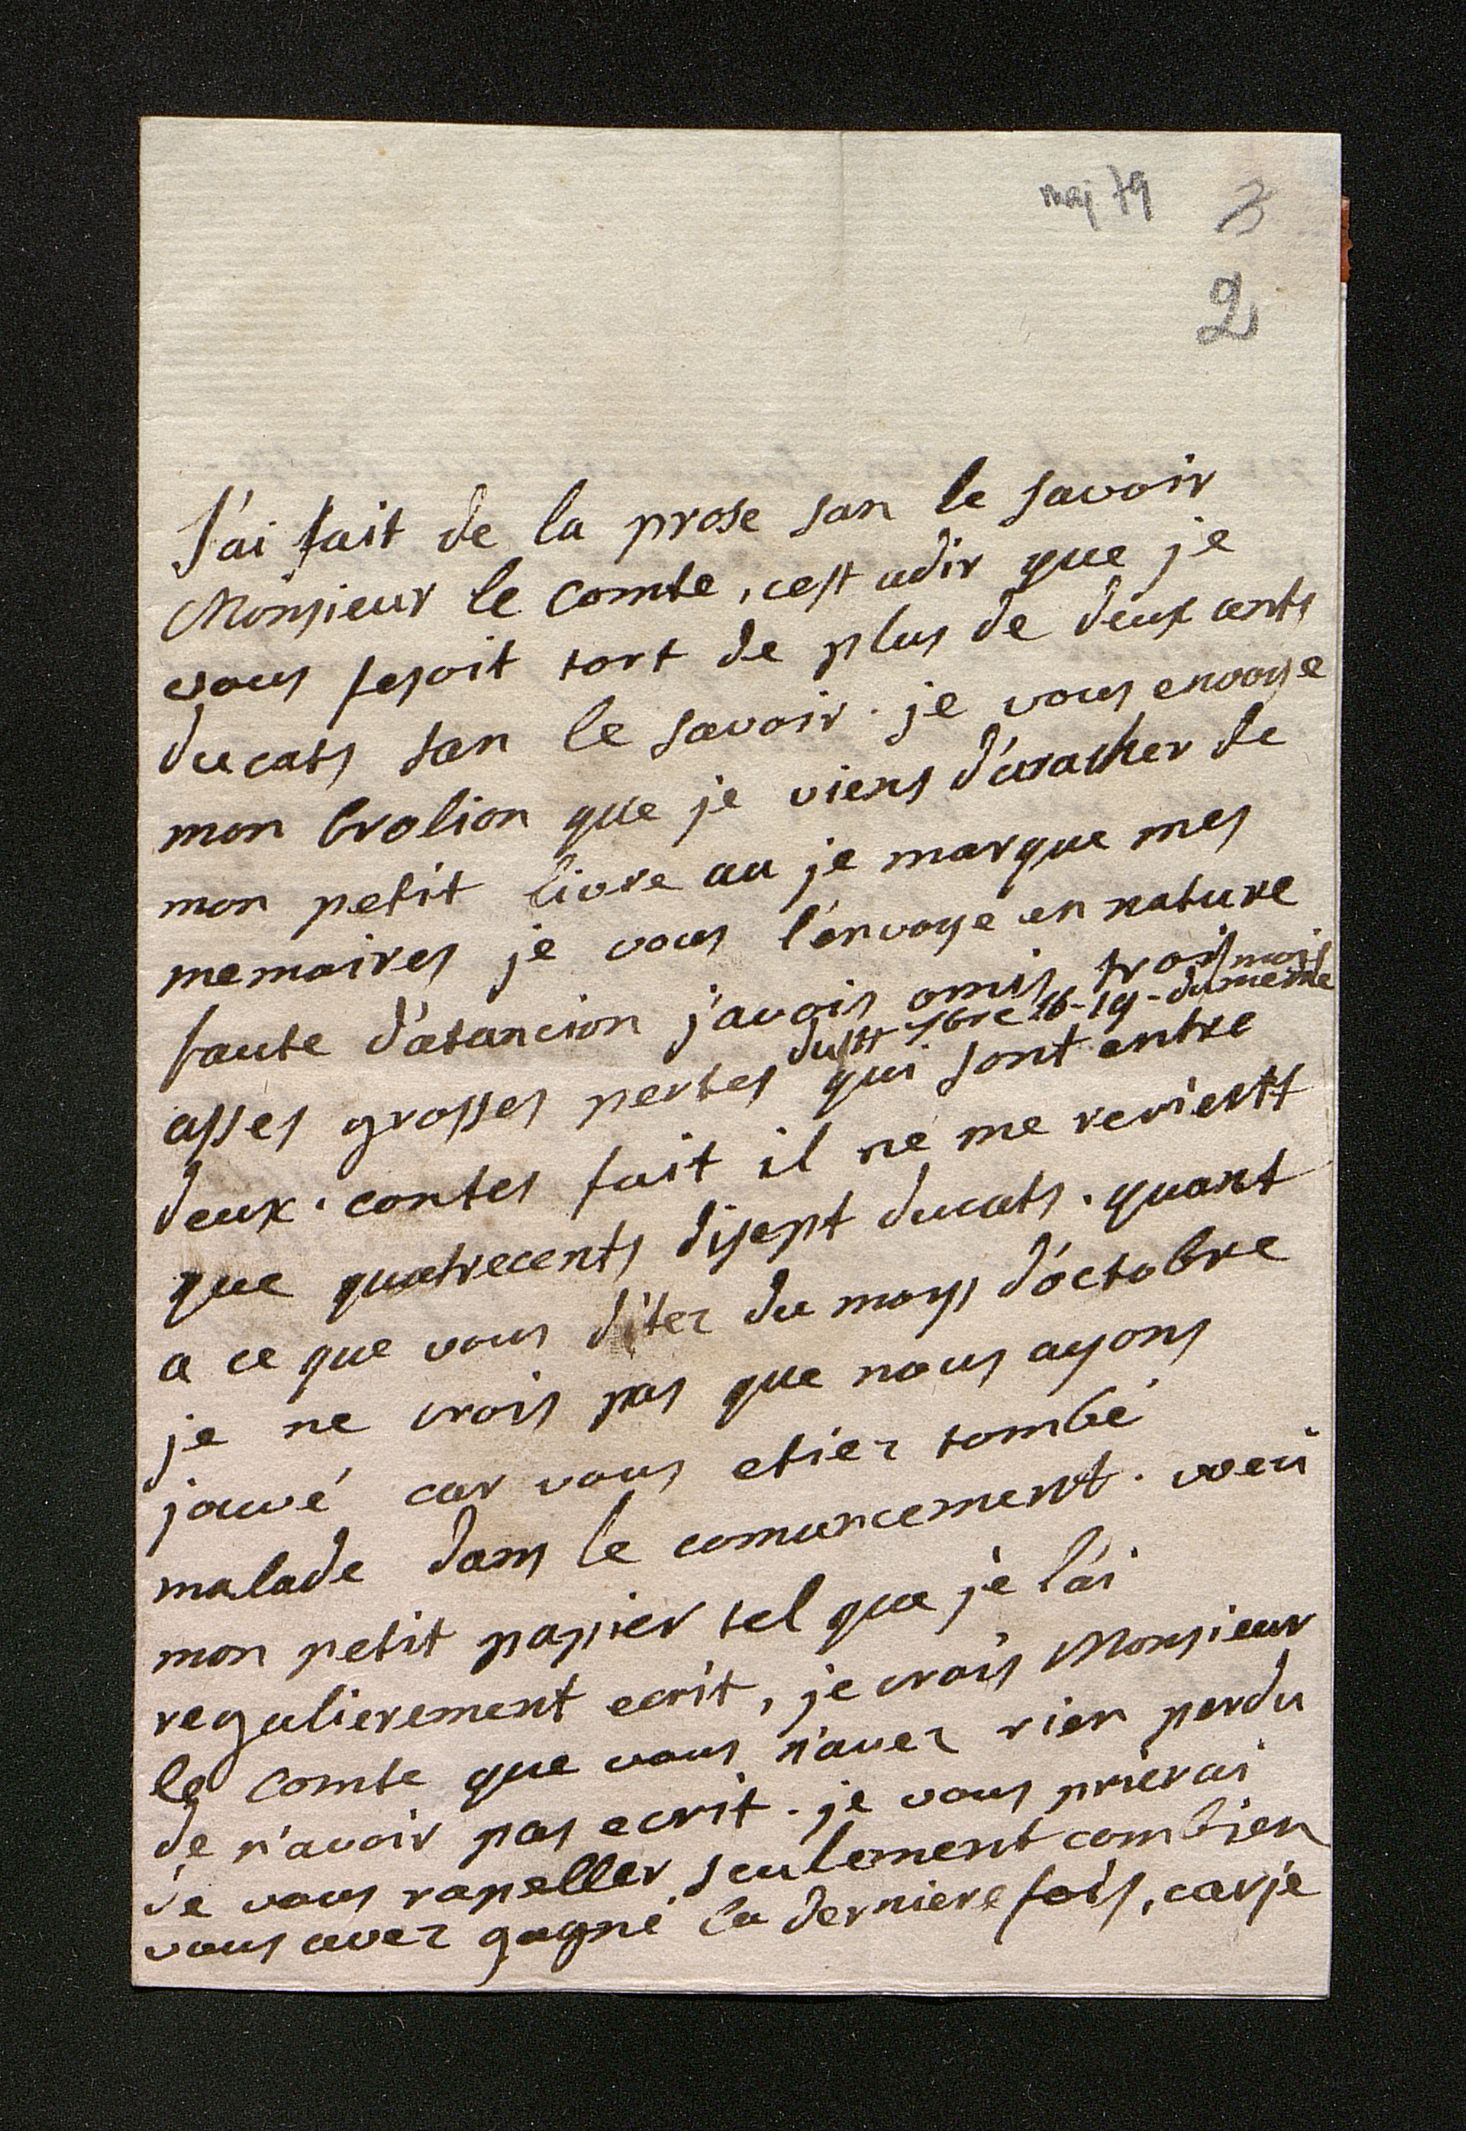 maj 79 3
2
J'ai fait de la prose san le savoir
Monsieur le Comte, cest adir que je
vous fesoit tort de plus de deux cents
ducats san le savoir. je vous envoye
mon brolion que je viens d'aracher de
mon petit livre au je marque mes
memoires je vous l'envoye en nature
faute d'atancion j'avois omis trois mois
du 7bre 16-19- du meme
asses grosses pertes qui sont entre
deux. contes fait il ne me revient
que quatrecents disept ducats. quant
a ce que vous diter du moys d'octobre
je ne crois pas que nous ayons
jouvé car vous etiez tombé
malade dans le comancement. voeci
mon petit papier tel que je l'ai
regulierement ecrit, je crois Monsieur
le Comte que vous n'avez rien perdu
de n'avoir pas ecrit. je vous prierai
de vous rapeller seulement combien
vous avez gagné la derniere fois, car je